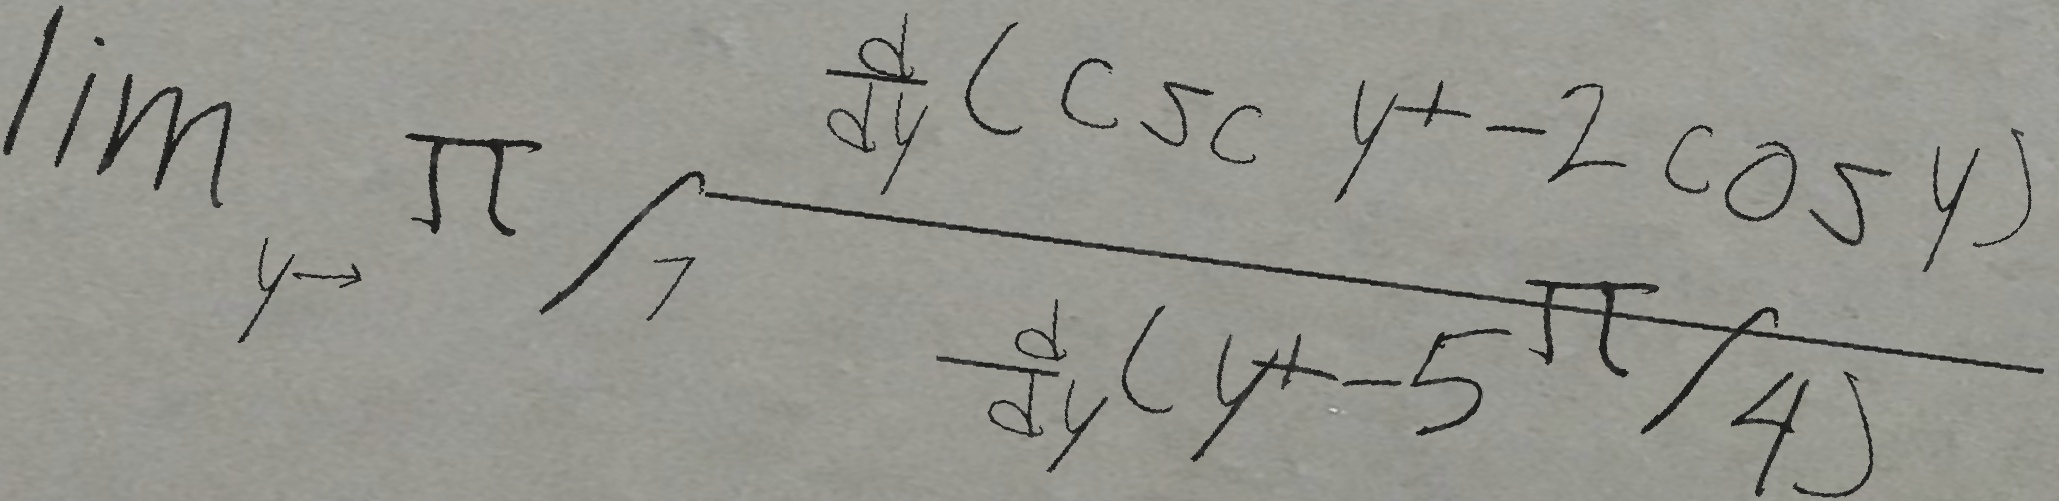 \lim_{y \to \pi/7} \frac{\frac{d}{dy}(\csc y + -2\cos y)}{\frac{d}{dy}(y + -5\pi/4)}